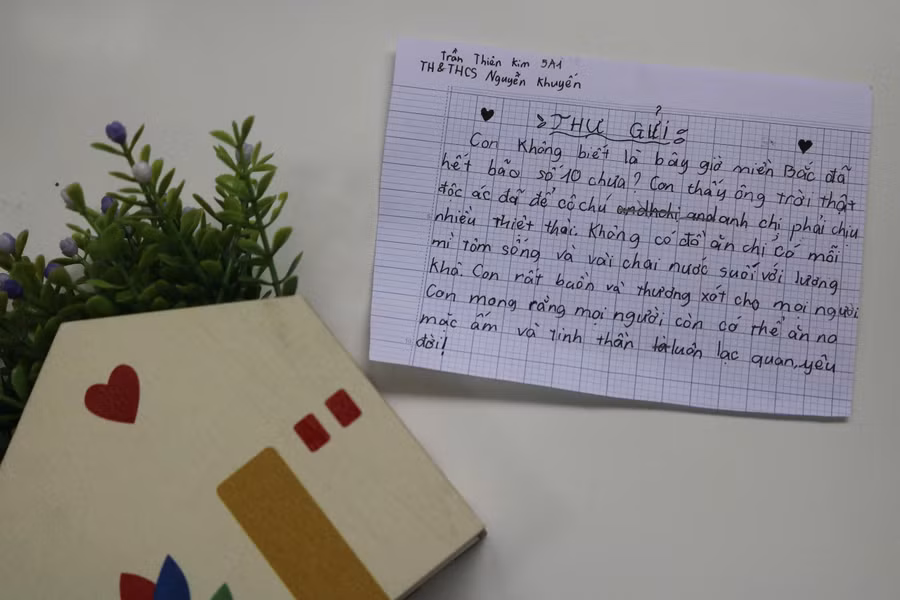 Trần Thiên Kim 9A1
TH & THCS Nguyễn Khuyến
THƯ GỬI
Con không biết là bây giờ miền Bắc đã
hết bão số 10 chưa? Con thấy ông trời thật
độc ác đã để cô chú anh chị phải chịu
nhiều thiệt thài. Không có đồ ăn chỉ có mỗi
mì tôm sống và vài chai nước suối với lương
khô. Con rất buồn và thương xót cho mọi người
Con mong rằng mọi người còn có thể ăn no
mặc ấm và tinh thần luôn lạc quan, yêu
đời!